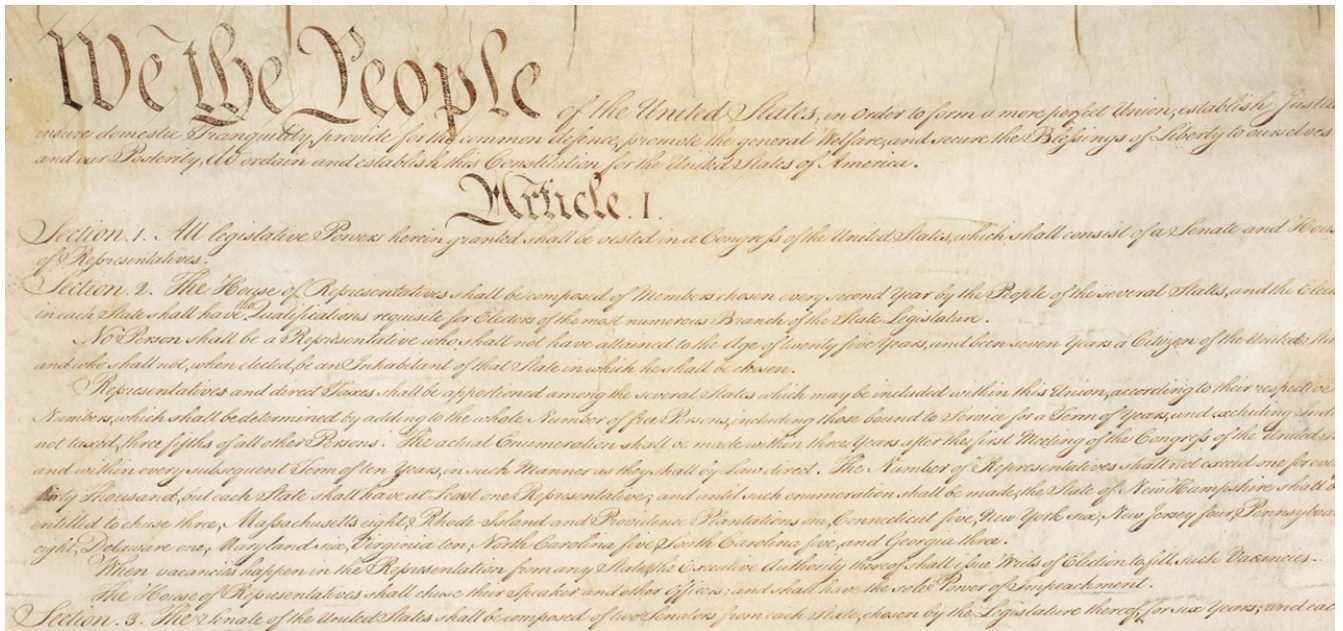 We the People of the United States, in Order to form a more perfect Union, establish Justic
insure domestic Tranquility, provide for the common defence, promote the general Welfare, and secure the Blessings of Liberty to ourselves
and our Posterity, do ordain and establish this Constitution for the United States of America.
Article. I.
Section. 1. All legislative Powers herein granted shall be vested in a Congress of the United States, which shall consist of a Senate and Hous
of Representatives.
Section. 2. The House of Representatives shall be composed of Members chosen every second Year by the People of the several States, and the Elec
in each State shall have the Qualifications requisite for Electors of the most numerous Branch of the State Legislature.
No Person shall be a Representative who shall not have attained to the Age of twenty five Years, and been seven Years a Citizen of the United
and who shall not, when elected, be an Inhabitant of that State in which he shall be chosen.
Representatives and direct Taxes shall be apportioned among the several States which may be included within this Union, according to their respective
Numbers, which shall be determined by adding to the whole Number of free Persons, including those bound to Service for a Term of Years, and excluding Ind
not taxed, three fifths of all other Persons. The actual Enumeration shall be made within three Years after the first Meeting of the Congress of the United
and within every subsequent Term of ten Years, in such Manner as they shall by Law direct. The Number of Representatives shall not exceed one for eve
thirty Thousand, but each State shall have at Least one Representative; and until such enumeration shall be made, the State of New Hampshire shall b
entitled to chuse three, Massachusetts eight, Rhode-Island and Providence Plantations one, Connecticut five, New-York six, New Jersey four, Pennsylvan
eight, Delaware one, Maryland six, Virginia ten, North Carolina five, South Carolina five, and Georgia three.
When vacancies happen in the Representation from any State, the Executive Authority thereof shall issue Writs of Election to fill such Vacancies.
The House of Representatives shall chuse their Speaker and other Officers; and shall have the sole Power of Impeachment.
Section. 3. The Senate of the United States shall be composed of two Senators from each State, chosen by the Legislature thereof, for six Years; and eac